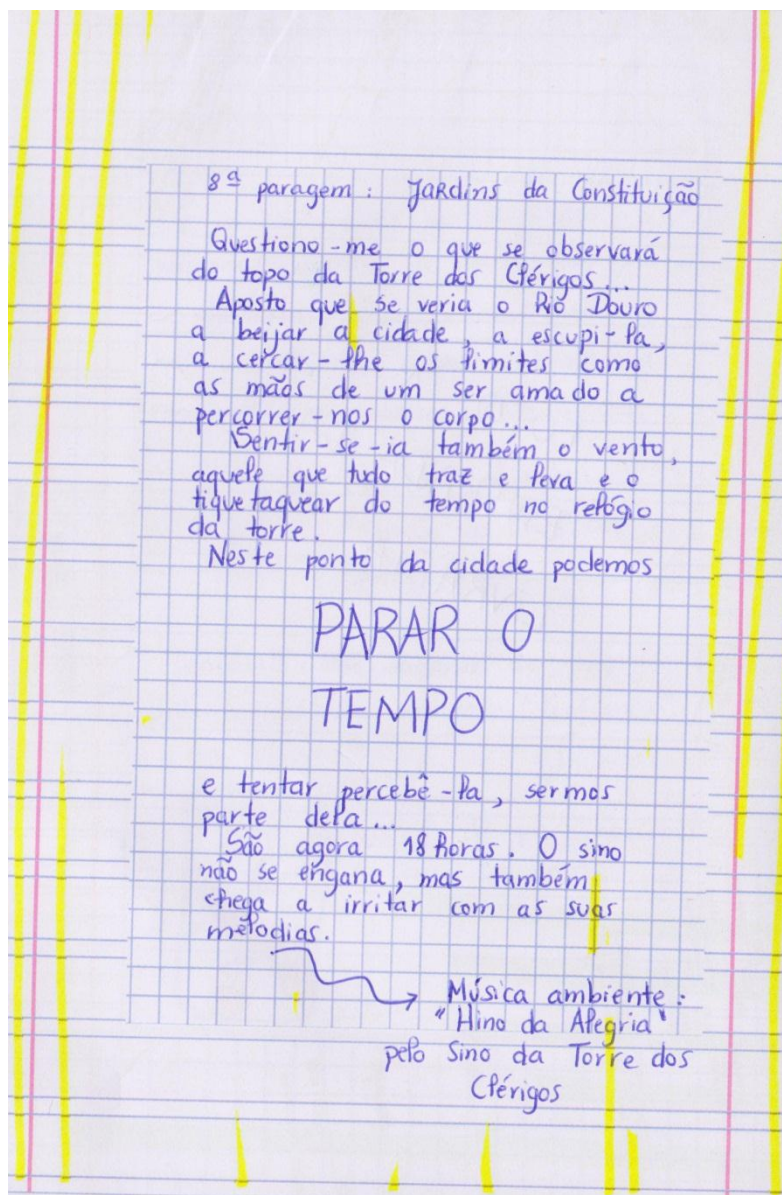 8ª paragem: Jardins da Constituição
Questiono-me o que se observará
do topo da Torre dos Clérigos...
Aposto que se veria o Rio Douro
a beijar a cidade, a escupi-la,
a cercar-lhe os limites como
as mãos de um ser amado a
percorrer-nos o corpo...
Sentir-se-ia também o vento,
aquele que tudo traz e leva e o
tiquetaquear do tempo no relógio
da torre.
Neste ponto da cidade podemos
PARAR O
TEMPO
e tentar percebê-la, sermos
parte dela...
São agora 18 horas. O sino
não se engana, mas também
chega a irritar com as suas
melodias.
Música ambiente:
"Hino da Alegria"
pelo Sino da Torre dos
Clérigos